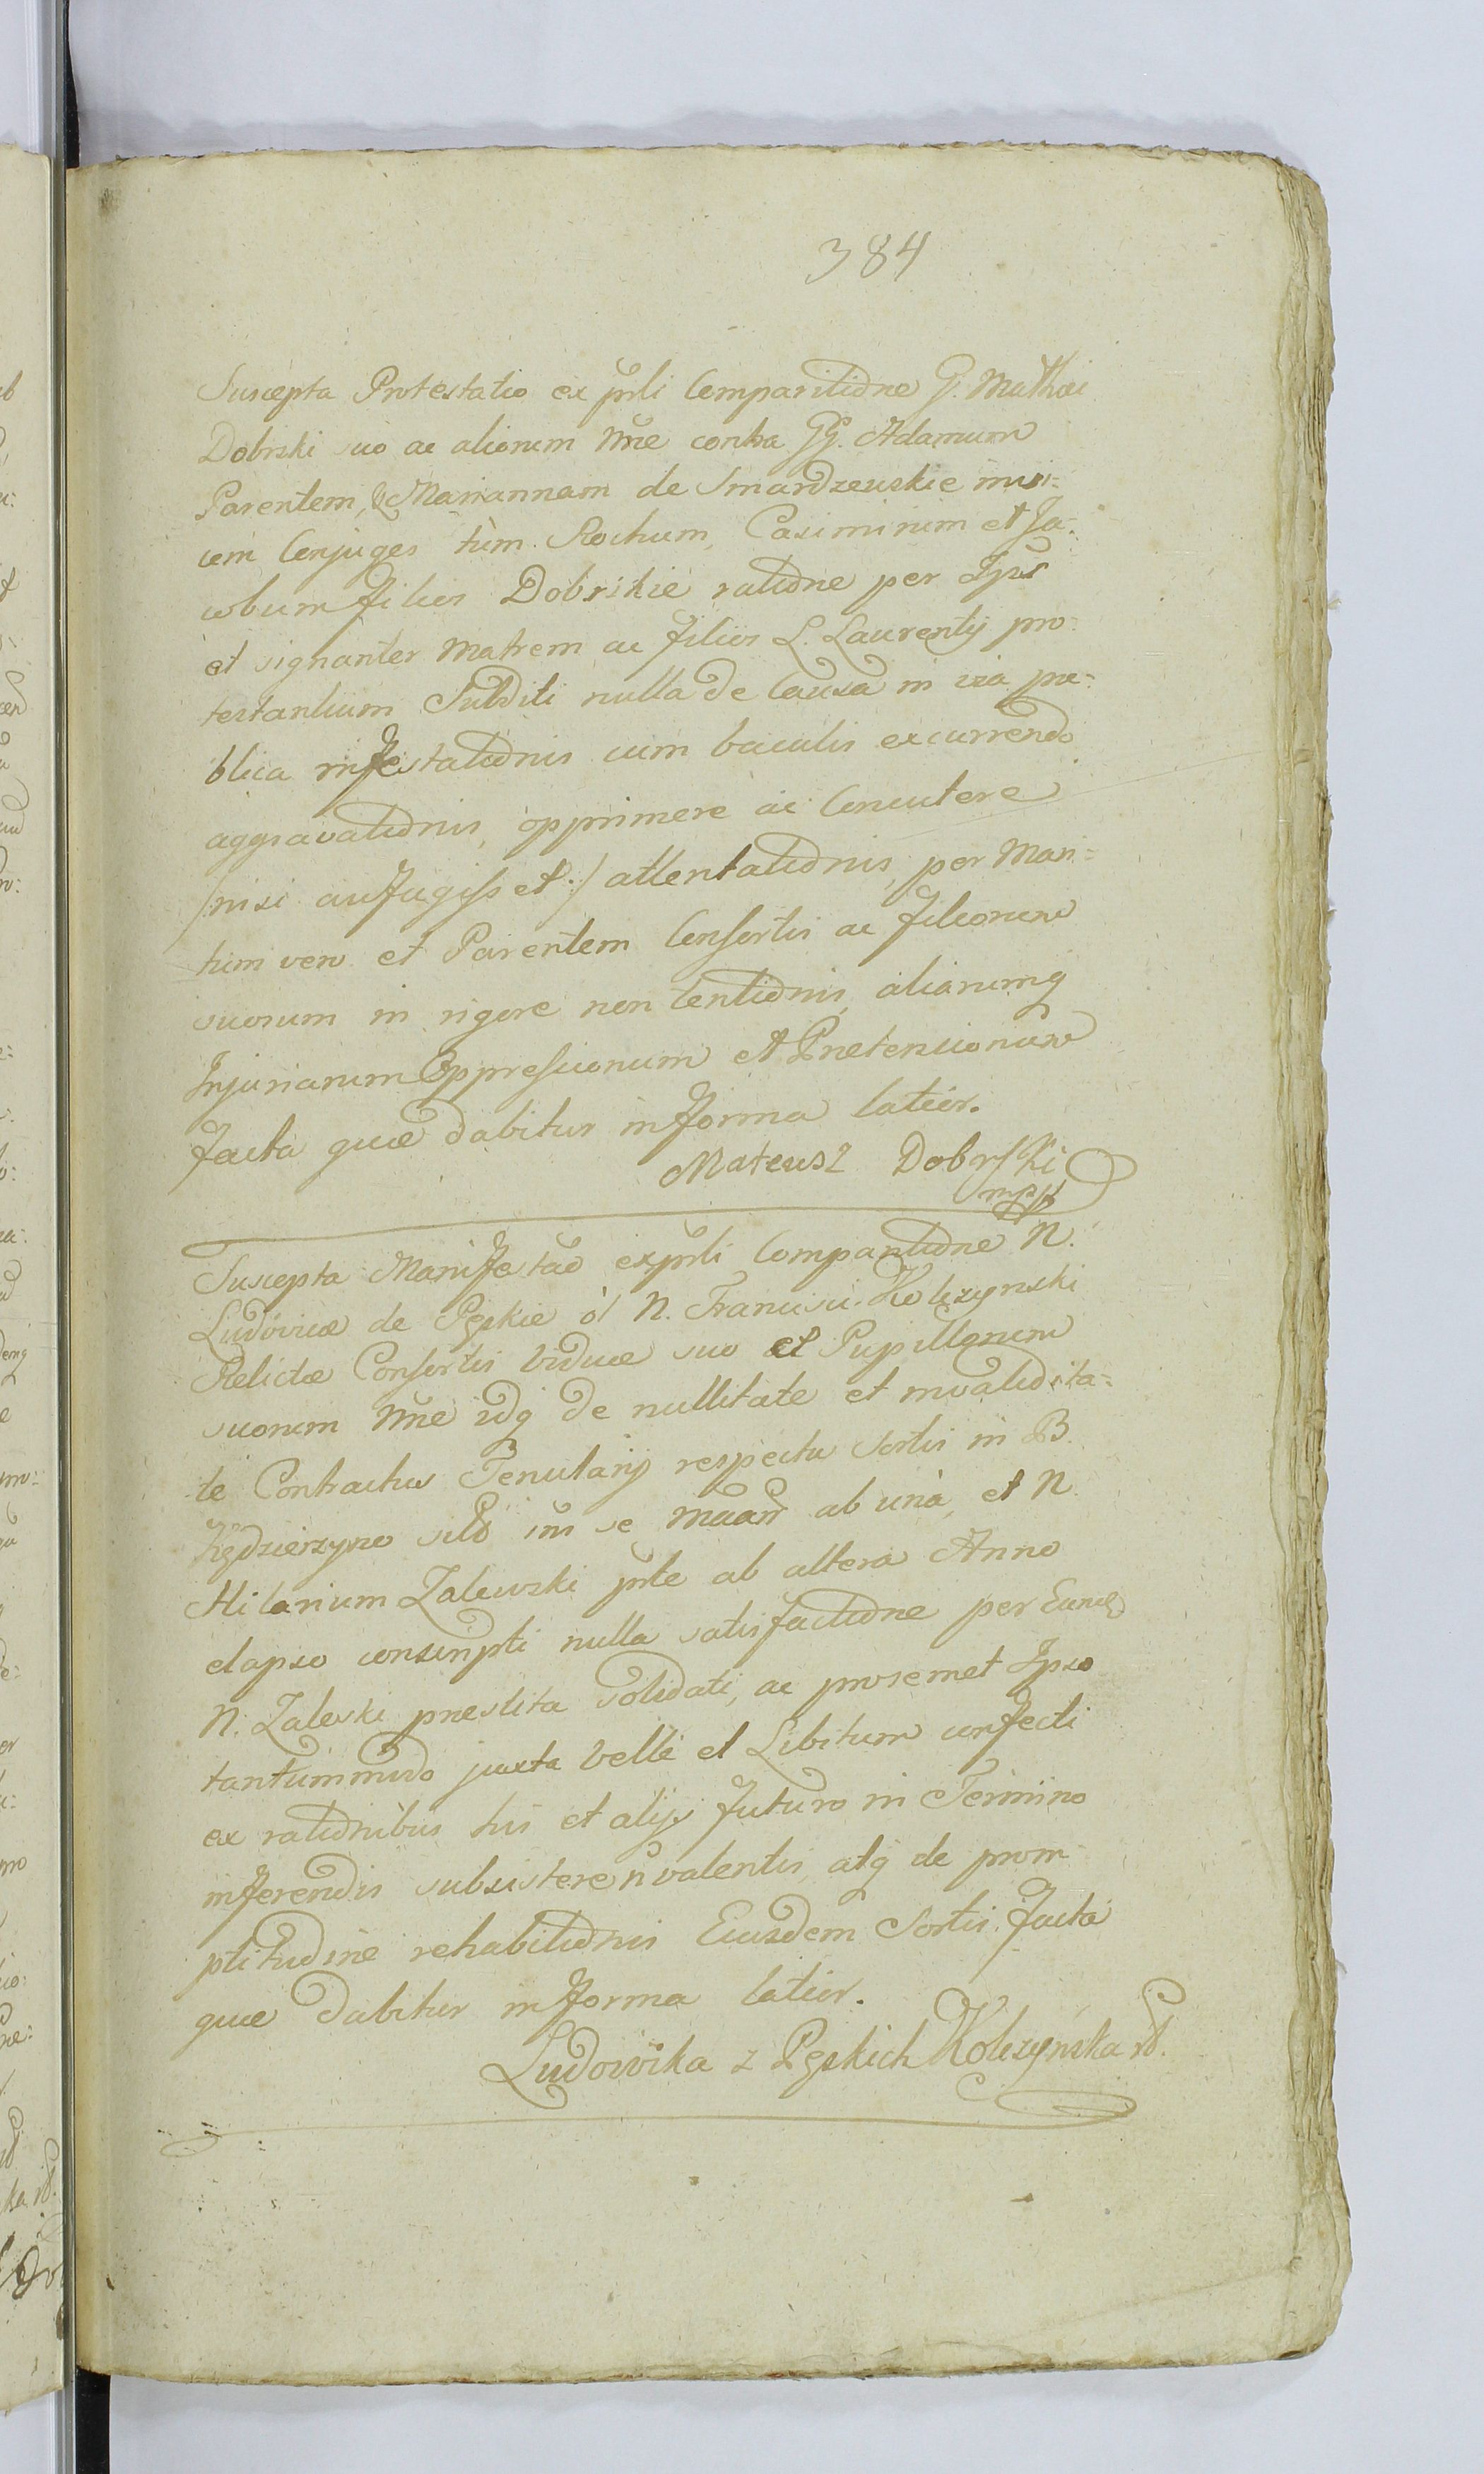 384
Suscepta Protestatio ex prśli Comparitiõne G. Mathæi
Dobrski suo ac aliorum Nñe contra GG. Adamum
Parentem, & Mariannam de Smardzewskie invi:
cem Conjuges tùm Rochum, Casimirum et Ja:
cobum Filios Dobrskie ratiõne per Ipsos
et signanter Matrem ac Filios L. Laurentij pro:
testantium Subditi nulla de Causa in via pu:
blica infestatiõnis cum baculis excurrendo
aggravatiõnis, opprimere ac Concutere
/nisi aufugisset:/ attentatiõnis, per Mari:
tum vero et Parentem Consortis ac Filiorum
suorum in rigore non tentiõnis, aliarumq
Injuriarum Oppressionum et Prætensionum
facta quæ dabitur in forma latior.
Mateusz Dobrski
mpp
Suscepta Manifestaõ ex prśli Comparitiõne N.
Ludovicæ de Pęskie ol N. Francisci Kolszynski
Relictæ Consortis Viduæ suo et Pupillorum
suorum Nñe idq de nullitate et invalidita:
te Contractus Tenutarij respectu Sortis in B.
Kędzierzyno sub int se Maań ab unà, et N.
Hilarium Zalewski pte ab altera Anno
elapso conscripti nulla satisfactiõne per Eund
N. Zaleski præstita solidati, ac prosemet Ipso
tantummodo juxta Velle et Libitum confecti
ex ratiõnibus his et alijs futuro in Termino
inferendis subsistere ñ valentis, atq de prom
ptitudine rehabitiõnis Eiusdem Sortis facta
quæ dabitur in forma latior.
Ludowika z Pęskich Kolszyńska W.